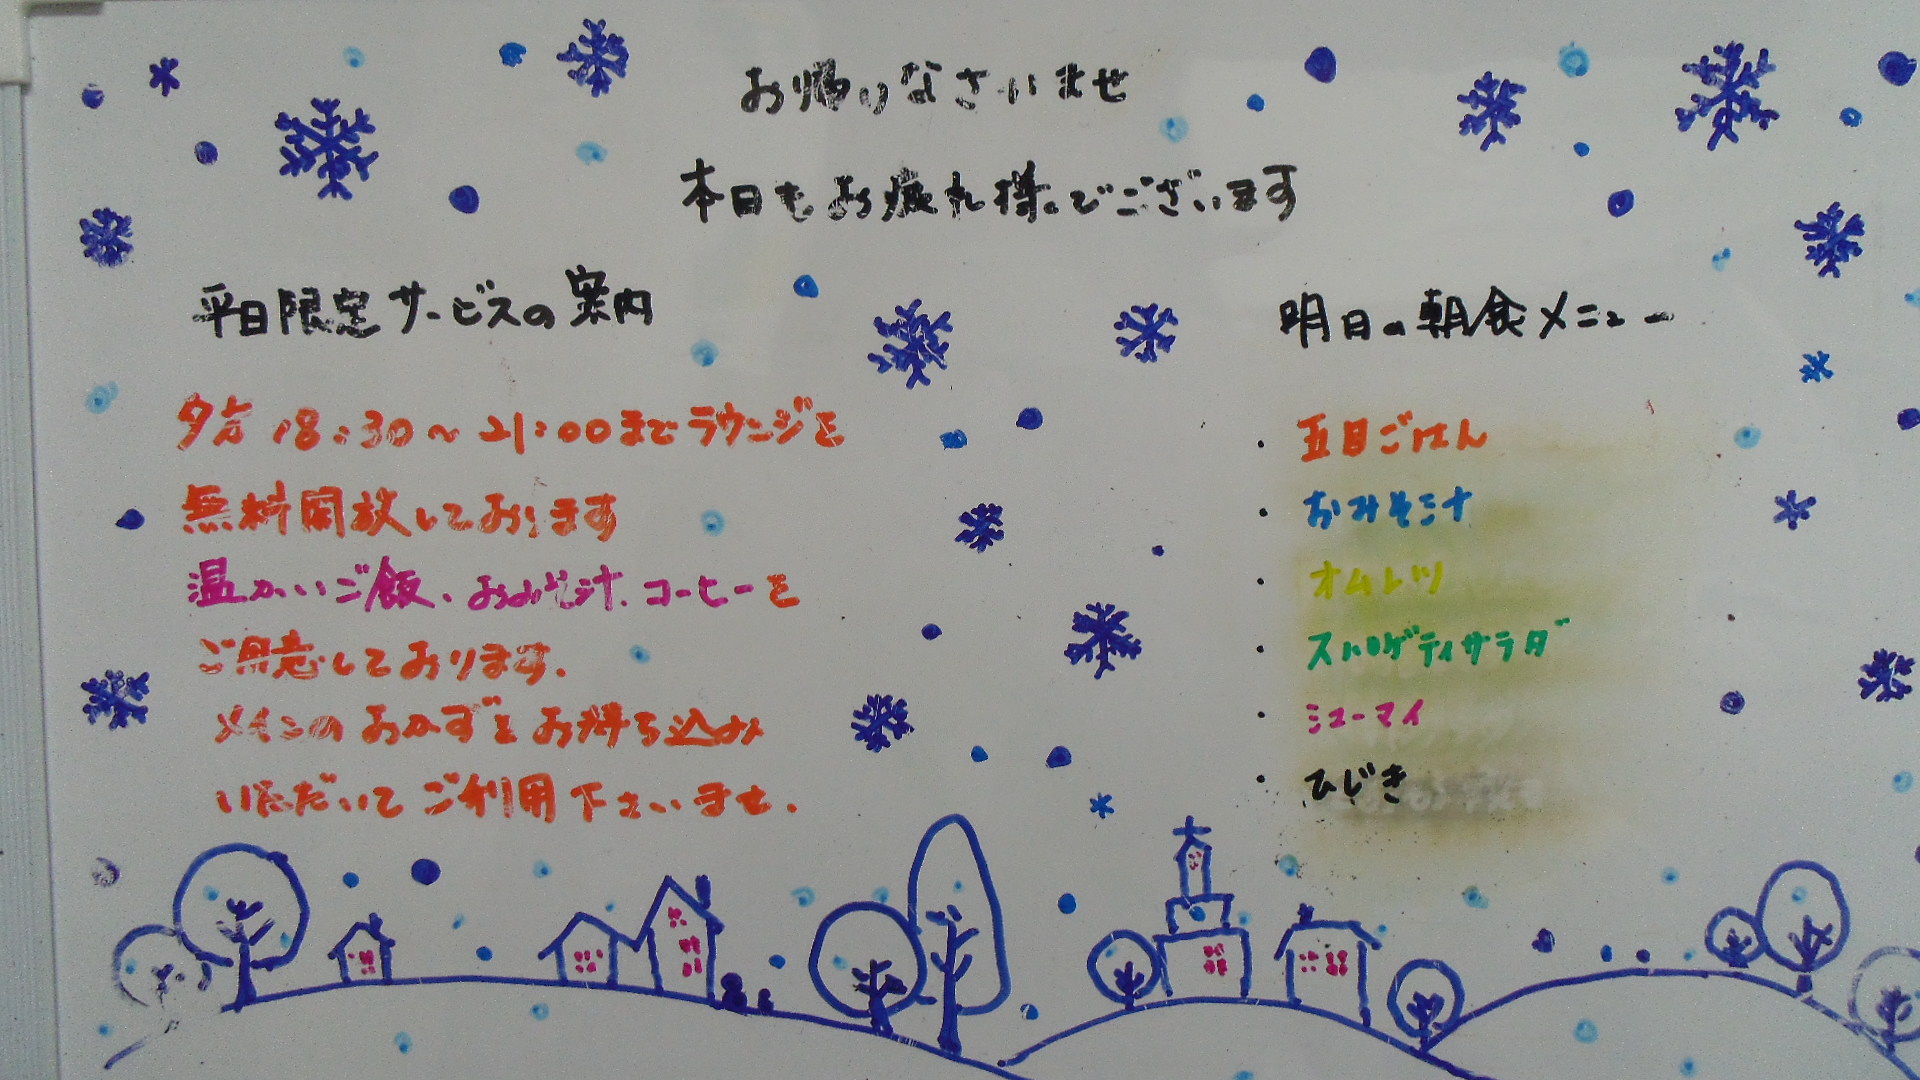 お帰りなさいませ
本日もお疲れ様でございます
平日限定サービスの案内
夕方 18:30～21:00までラウンジを
無料開放しております
温かいご飯、おみそ汁、コーヒーを
ご用意しております.
メインのおかずをお持ち込み
いただいてご利用下さいませ.
明日の朝食メニュー
・五目ごはん
・おみそ汁
・オムレツ
・スパゲティサラダ
・シューマイ
・ひじき